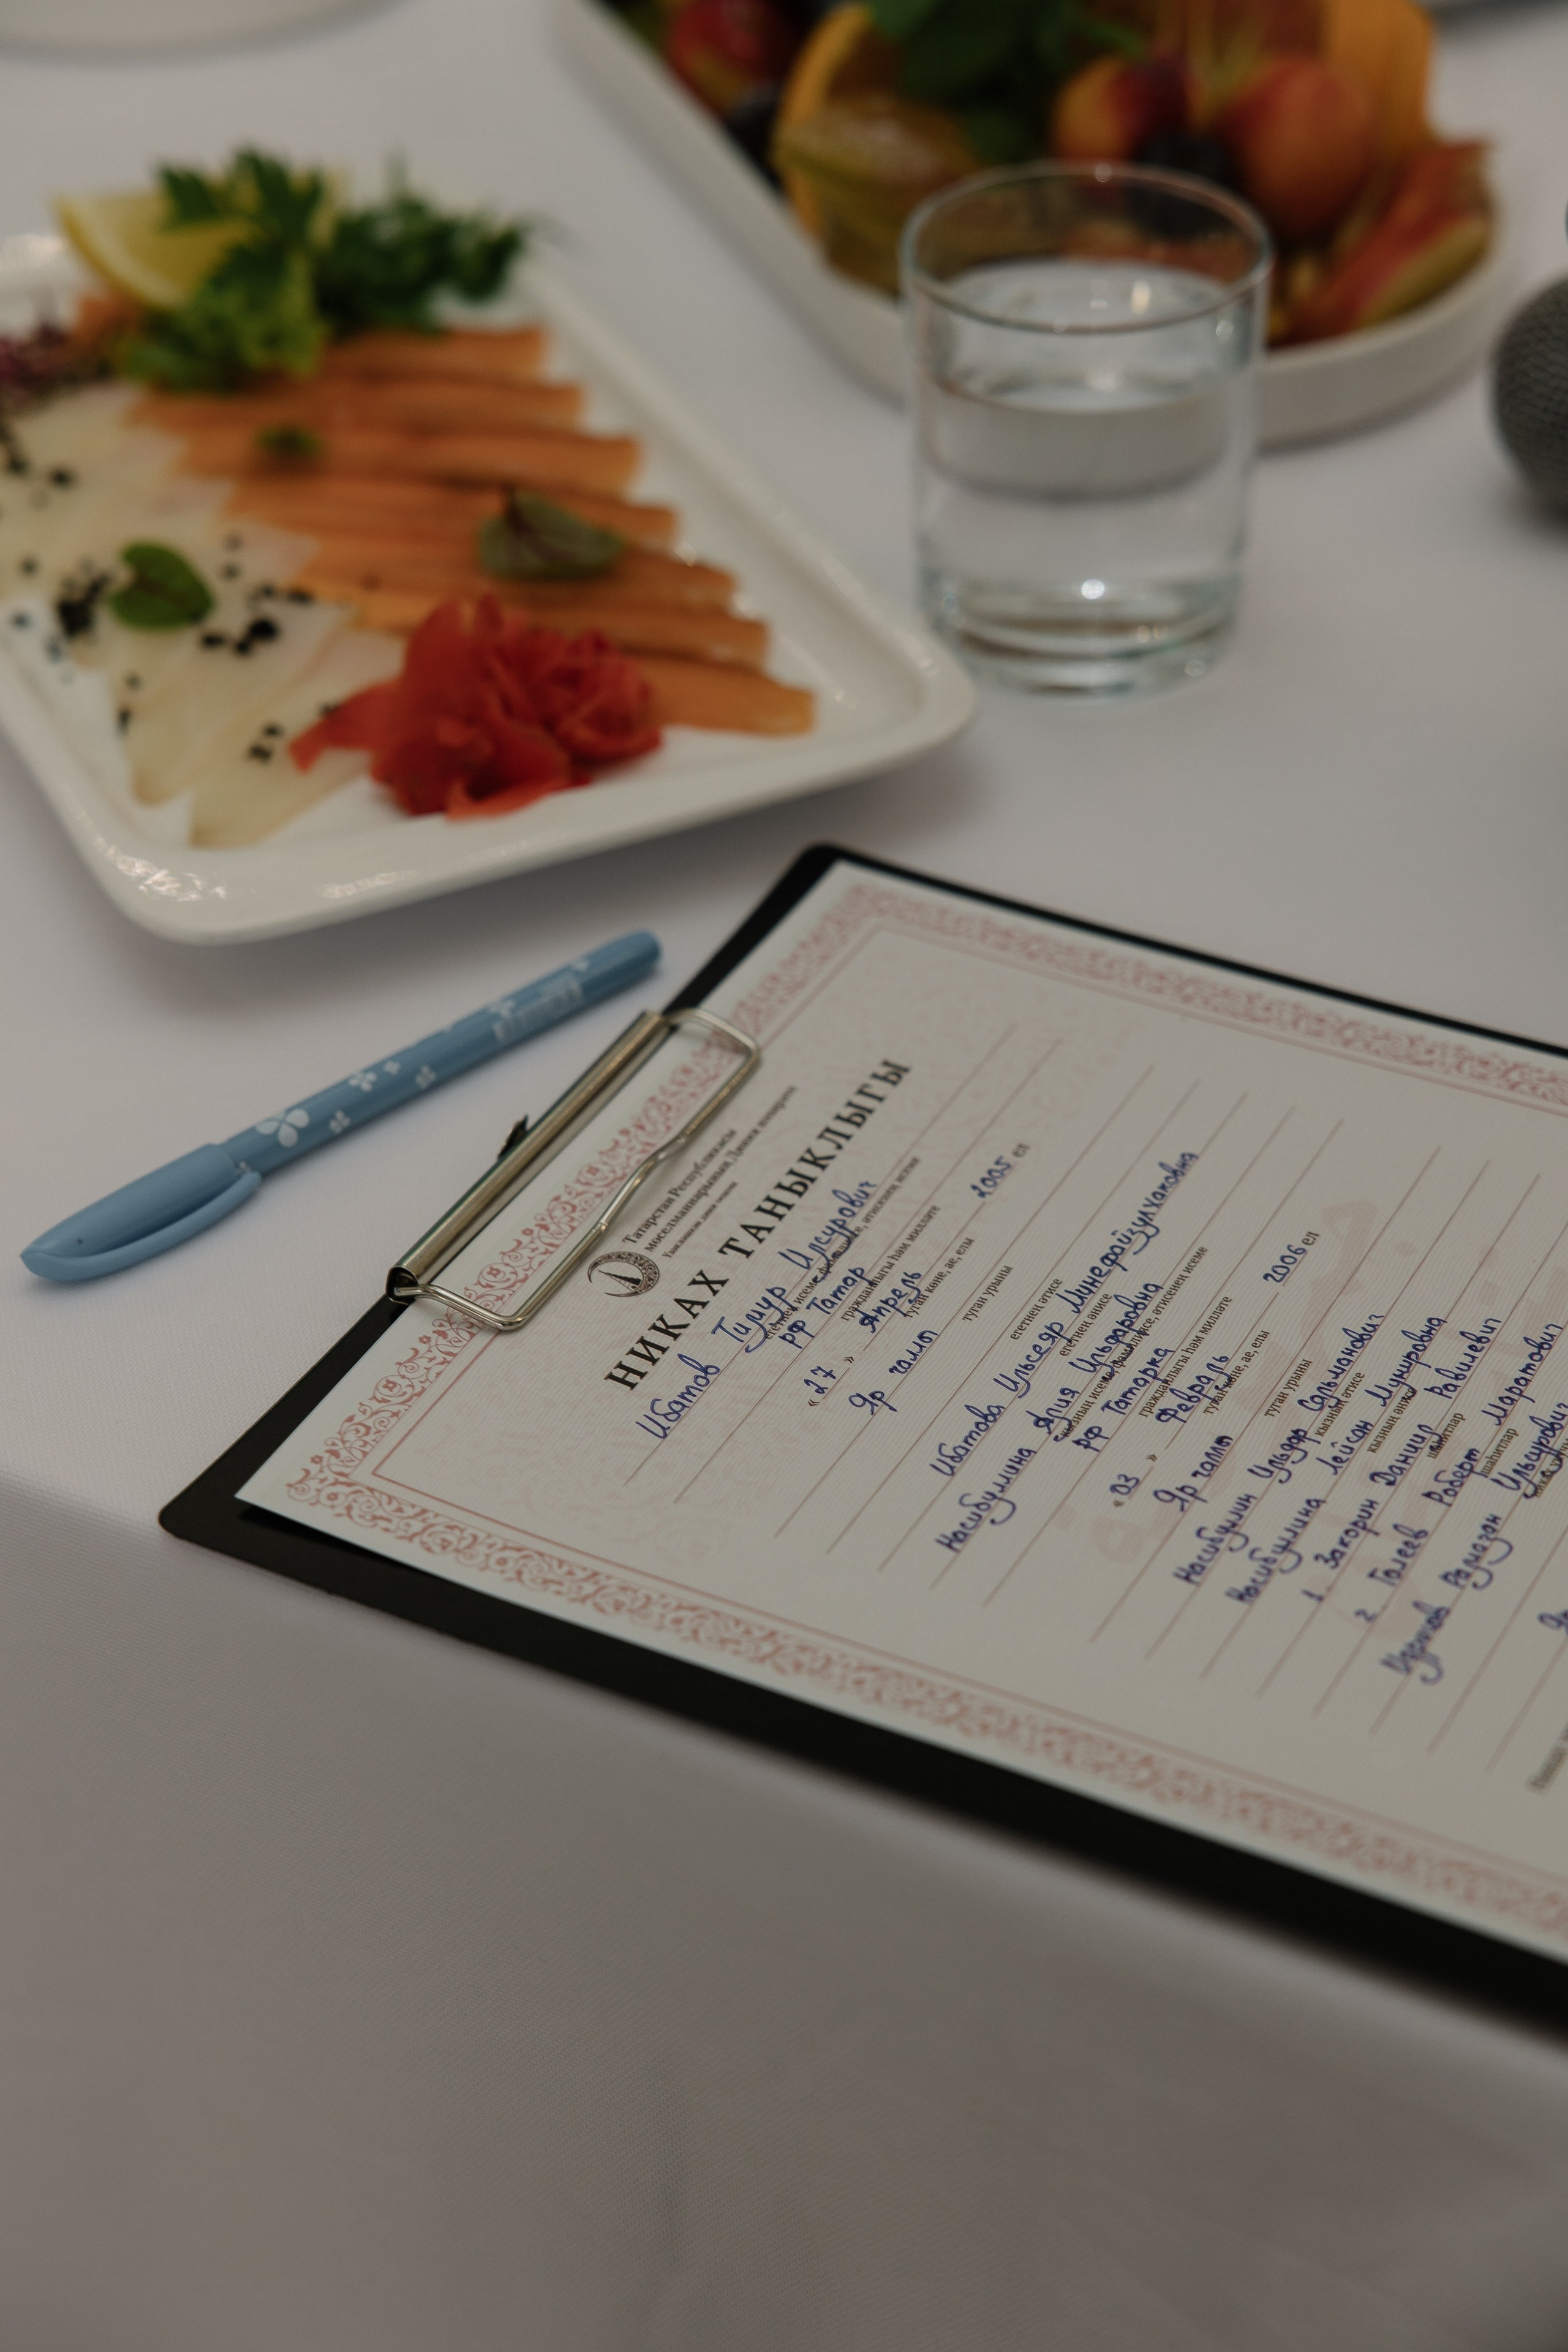 Татарстан Республикасы
мөселманнарының Диния нәзарәте
НИКАХ ТАНЫКЛЫГЫ
Ибатов Тимур Илсурович
егетнең исеме, фамилиясе, әтисенең исеме
РФ Татар
гражданлыгы һәм милләте
« 27 » Апрель 2005 ел
туган көне, ае, елы
Яр Чаллы
туган урыны
егетнең әтисе
Ибатова Ульсеяр Минефайзулхаковна
егетнең әнисе
Насибуллина Алия Ильдаровна
кызның исеме, фамилиясе, әтисенең исеме
РФ Татарка
гражданлыгы һәм милләте
« 03 » Февраль 2006 ел
туган көне, ае, елы
Яр Чаллы
туган урыны
Насибуллин Ильдар Салманович
кызның әтисе
Насибуллина Лейсан Мунировна
кызның әнисе
1 Закорин Даниил Равилевич
шаһитлар
2 Галеев Роберт Маратович
шаһитлар
Рамазан Ильсурович